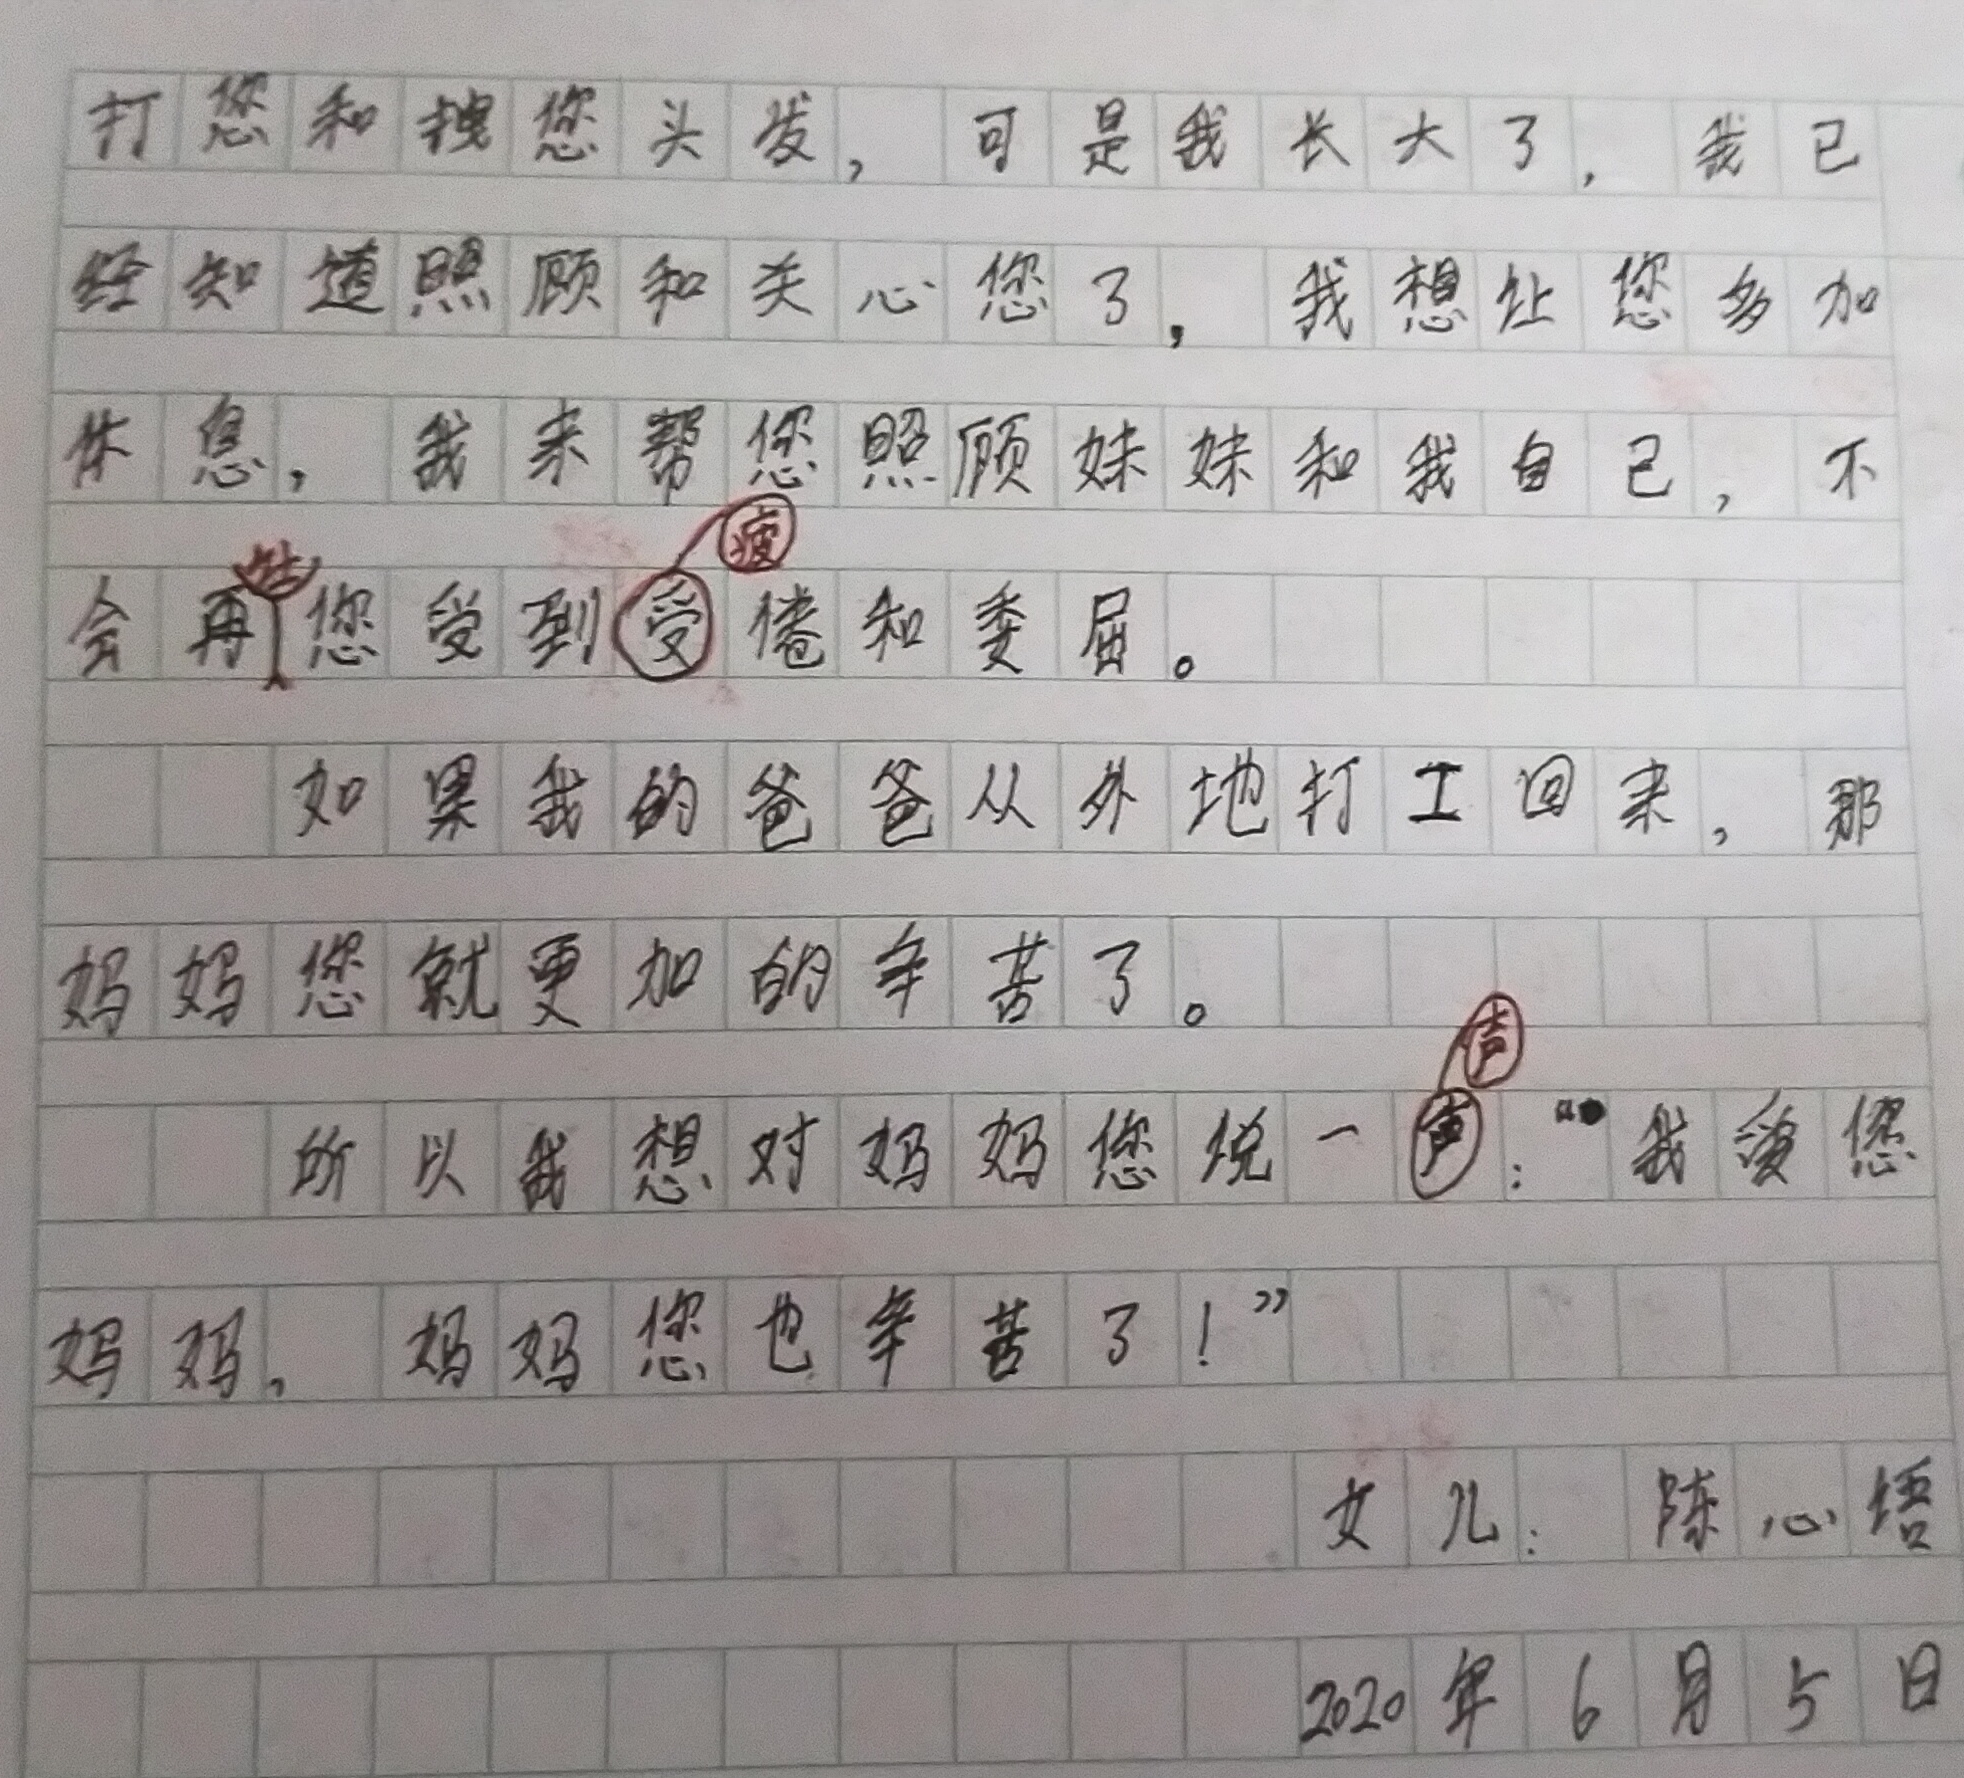 打您和拽您头发，可是我长大了，我已
经知道照顾和关心您了，我想让您多加
休息，我来帮您照顾妹妹和我自己，不
疲
会再您受到受倦和委屈。
如果我的爸爸从外地打工回来，那
妈妈您就更加的辛苦了。
声
所以我想对妈妈您说一声：“我爱您
妈妈，妈妈您也辛苦了！”
女儿：陈心悟
2020年6月5日